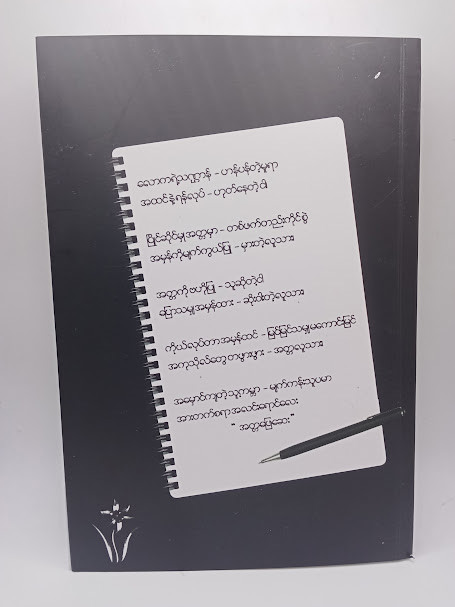 လောကရဲ့သဏ္ဌာန် - ဟန်ပန်တဲ့မူရာ
အထင်နဲ့ရန်လုပ် - ဟုတ်နေတဲ့ငါ
ပြိုင်ဆိုင်မှုအတ္တမှာ - တစ်ဖက်တည်းကိုင်စွဲ
အမှန်ကိုမျက်ကွယ်ပြု - မှားတဲ့လူသား
အတ္တကိုဗဟိုပြု - သူဆိုတဲ့ငါ
ပြောသမျှအမှန်ထား - ဆိုးဝါးတဲ့လူသား
ကိုယ်လုပ်တာအမှန်ထင် - မြင်မြင်သမျှမကောင်းမြင်
အကုသိုလ်တွေတဖွားဖွား - အတ္တလူသား
အမှောင်ကျတဲ့သူ့ကမ္ဘာ - မျက်ကန်းသူပမာ
အားတက်စရာအလင်းရောင်လေး
“ အတ္တမပြေဆေး”